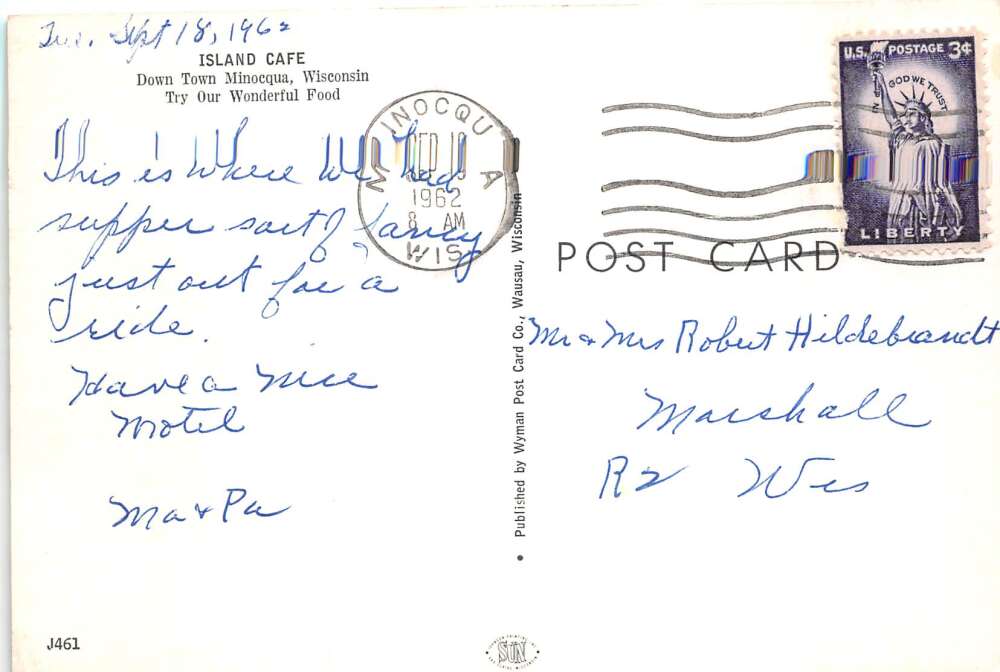 Tue. Sept 18, 1962
ISLAND CAFE
Down Town Minocqua, Wisconsin
Try Our Wonderful Food
This is Where We had
supper sort of fancy
just out for a
ride.
Have a Nice
Motel
Ma & Pa
J461
MINOCQUA
1962
8 AM
WIS
Published by Wyman Post Card Co., Wausau, Wisconsin
U.S. POSTAGE 3¢
IN GOD WE TRUST
LIBERTY
POST CARD
Mr & Mrs Robert Hildebrandt
Marshall
R2 Wis
SUN